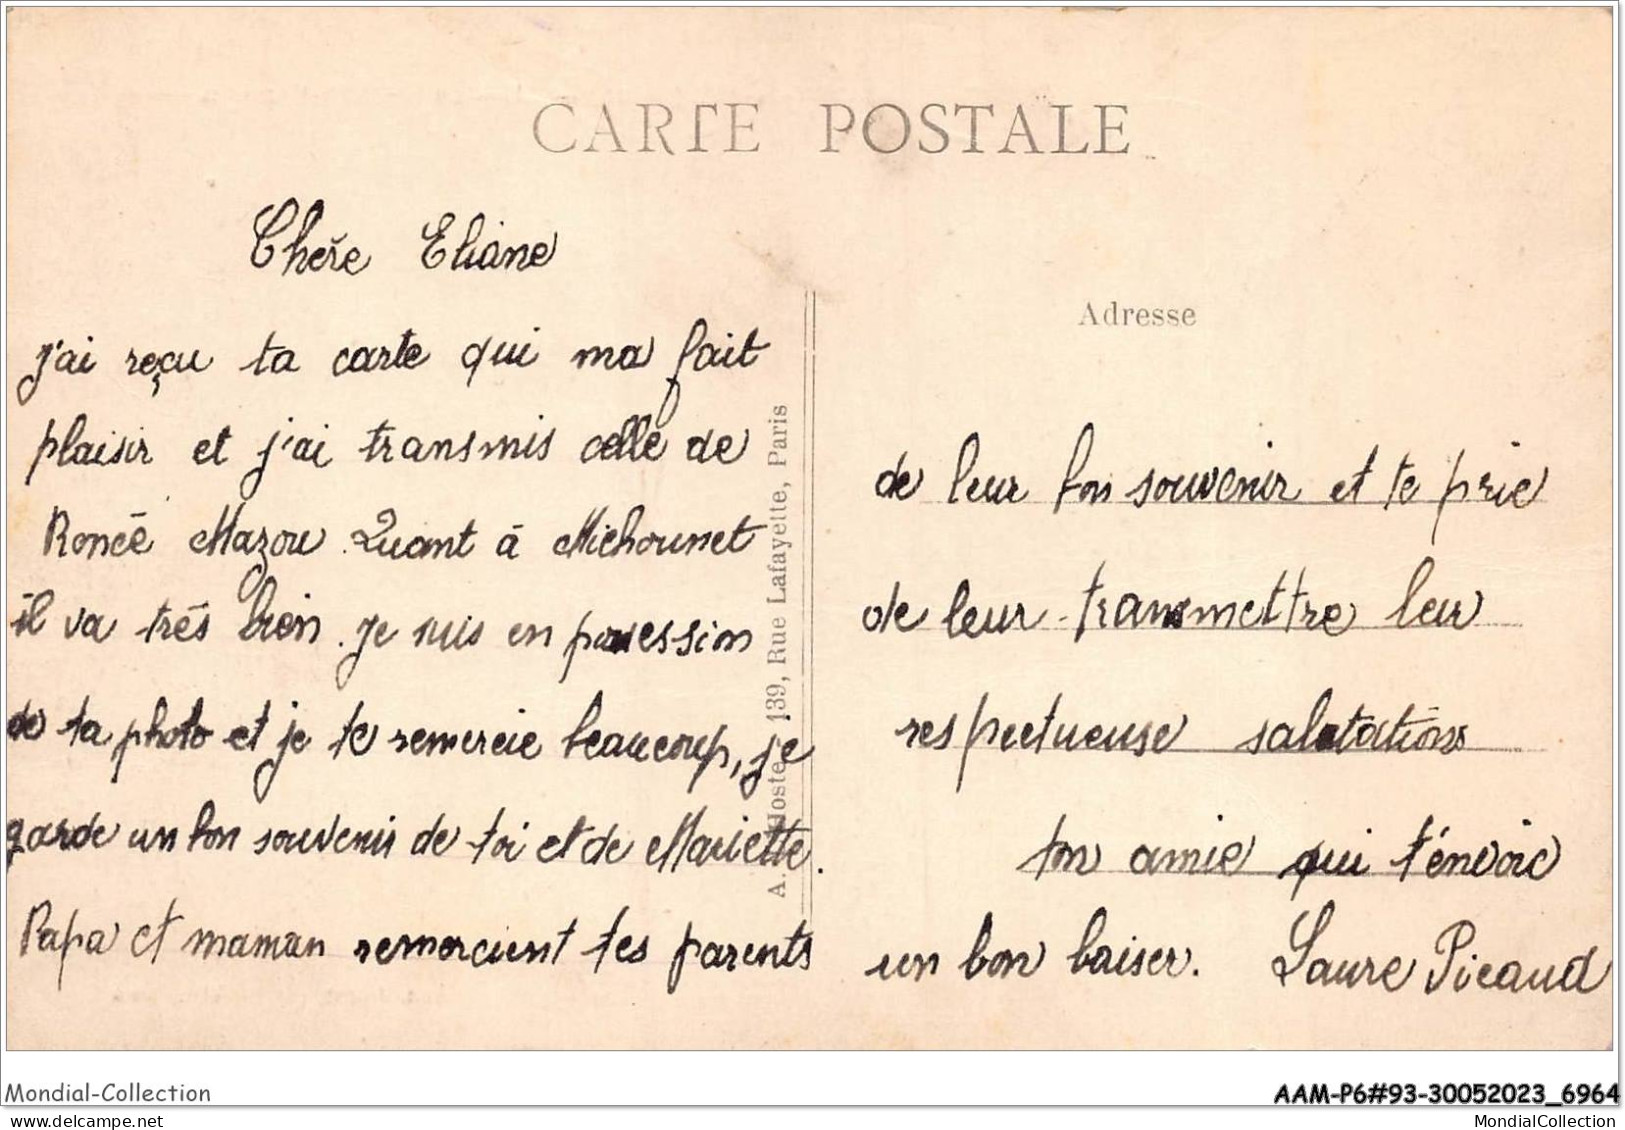 CARTE POSTALE
Chère Eliane
j'ai reçu ta carte qui ma fait
plaisir et j'ai transmis celle de
Renée Mazou. Quant à Michounet
il va trés bien. je suis en possession
de ta photo et je te remercie beaucoup, je
garde un bon souvenir de toi et de Mariette.
Papa et maman remercient tes parents
A. Hoste, 139, Rue Lafayette, Paris
Adresse
de leur bon souvenir et te prie
de leur transmettre leur
respectueuse salutations
ton amie qui t'envoie
un bon baiser. Laure Picaud
Mondial-Collection
AAM-P6#93-30052023_6964
mondial-collection
MondialCollection